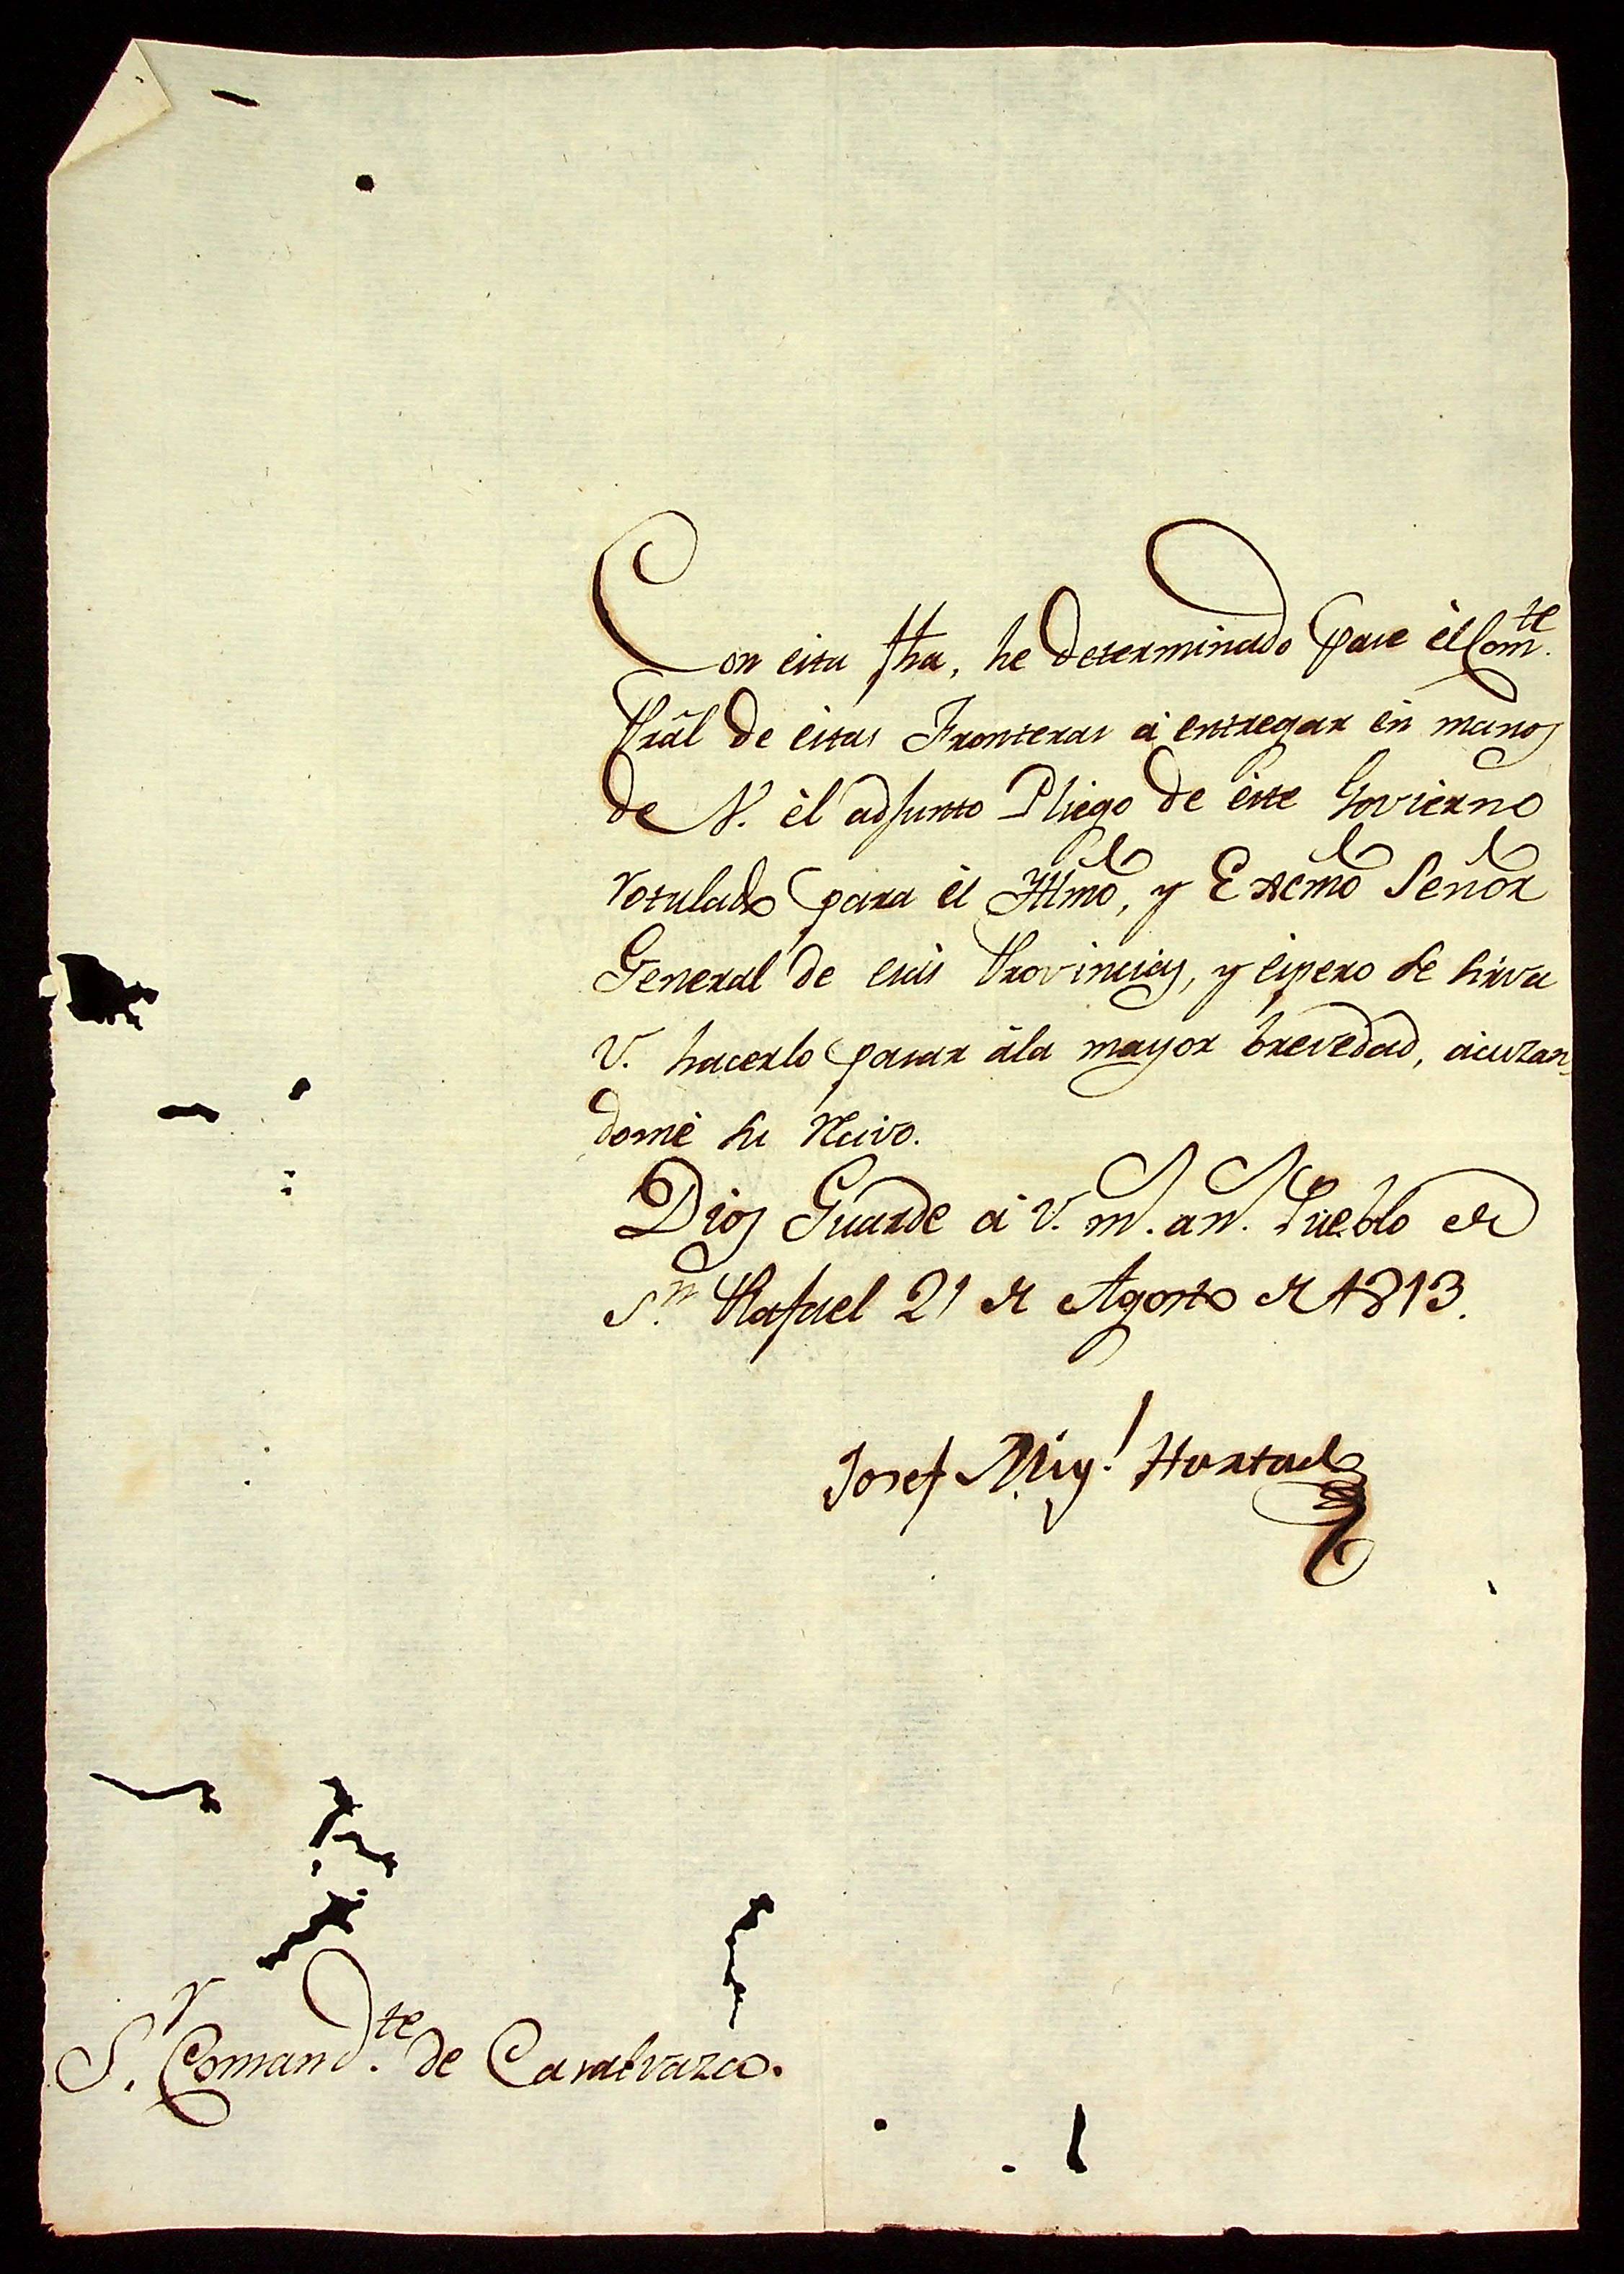 Con esta fha, he determinado pase èl Com.te
Gräl de èstas Fronteras à entregar èn manos
de V. èl adjunto Pliego de èste Govierno
rotulado para èl Yltmõ, y Excmõ Señor
General de esas Provincias, y èspero se sirva
V. hacerlo pasar àla mayor brevedad, acuzan-
domè su Recivo.
Dios Guarde à V. m. an. Pueblo de
S.n Rafael 21 de Agosto de 1813.
Josef Mig.l Hurtado
S.r Comand.te de Casalvazco.